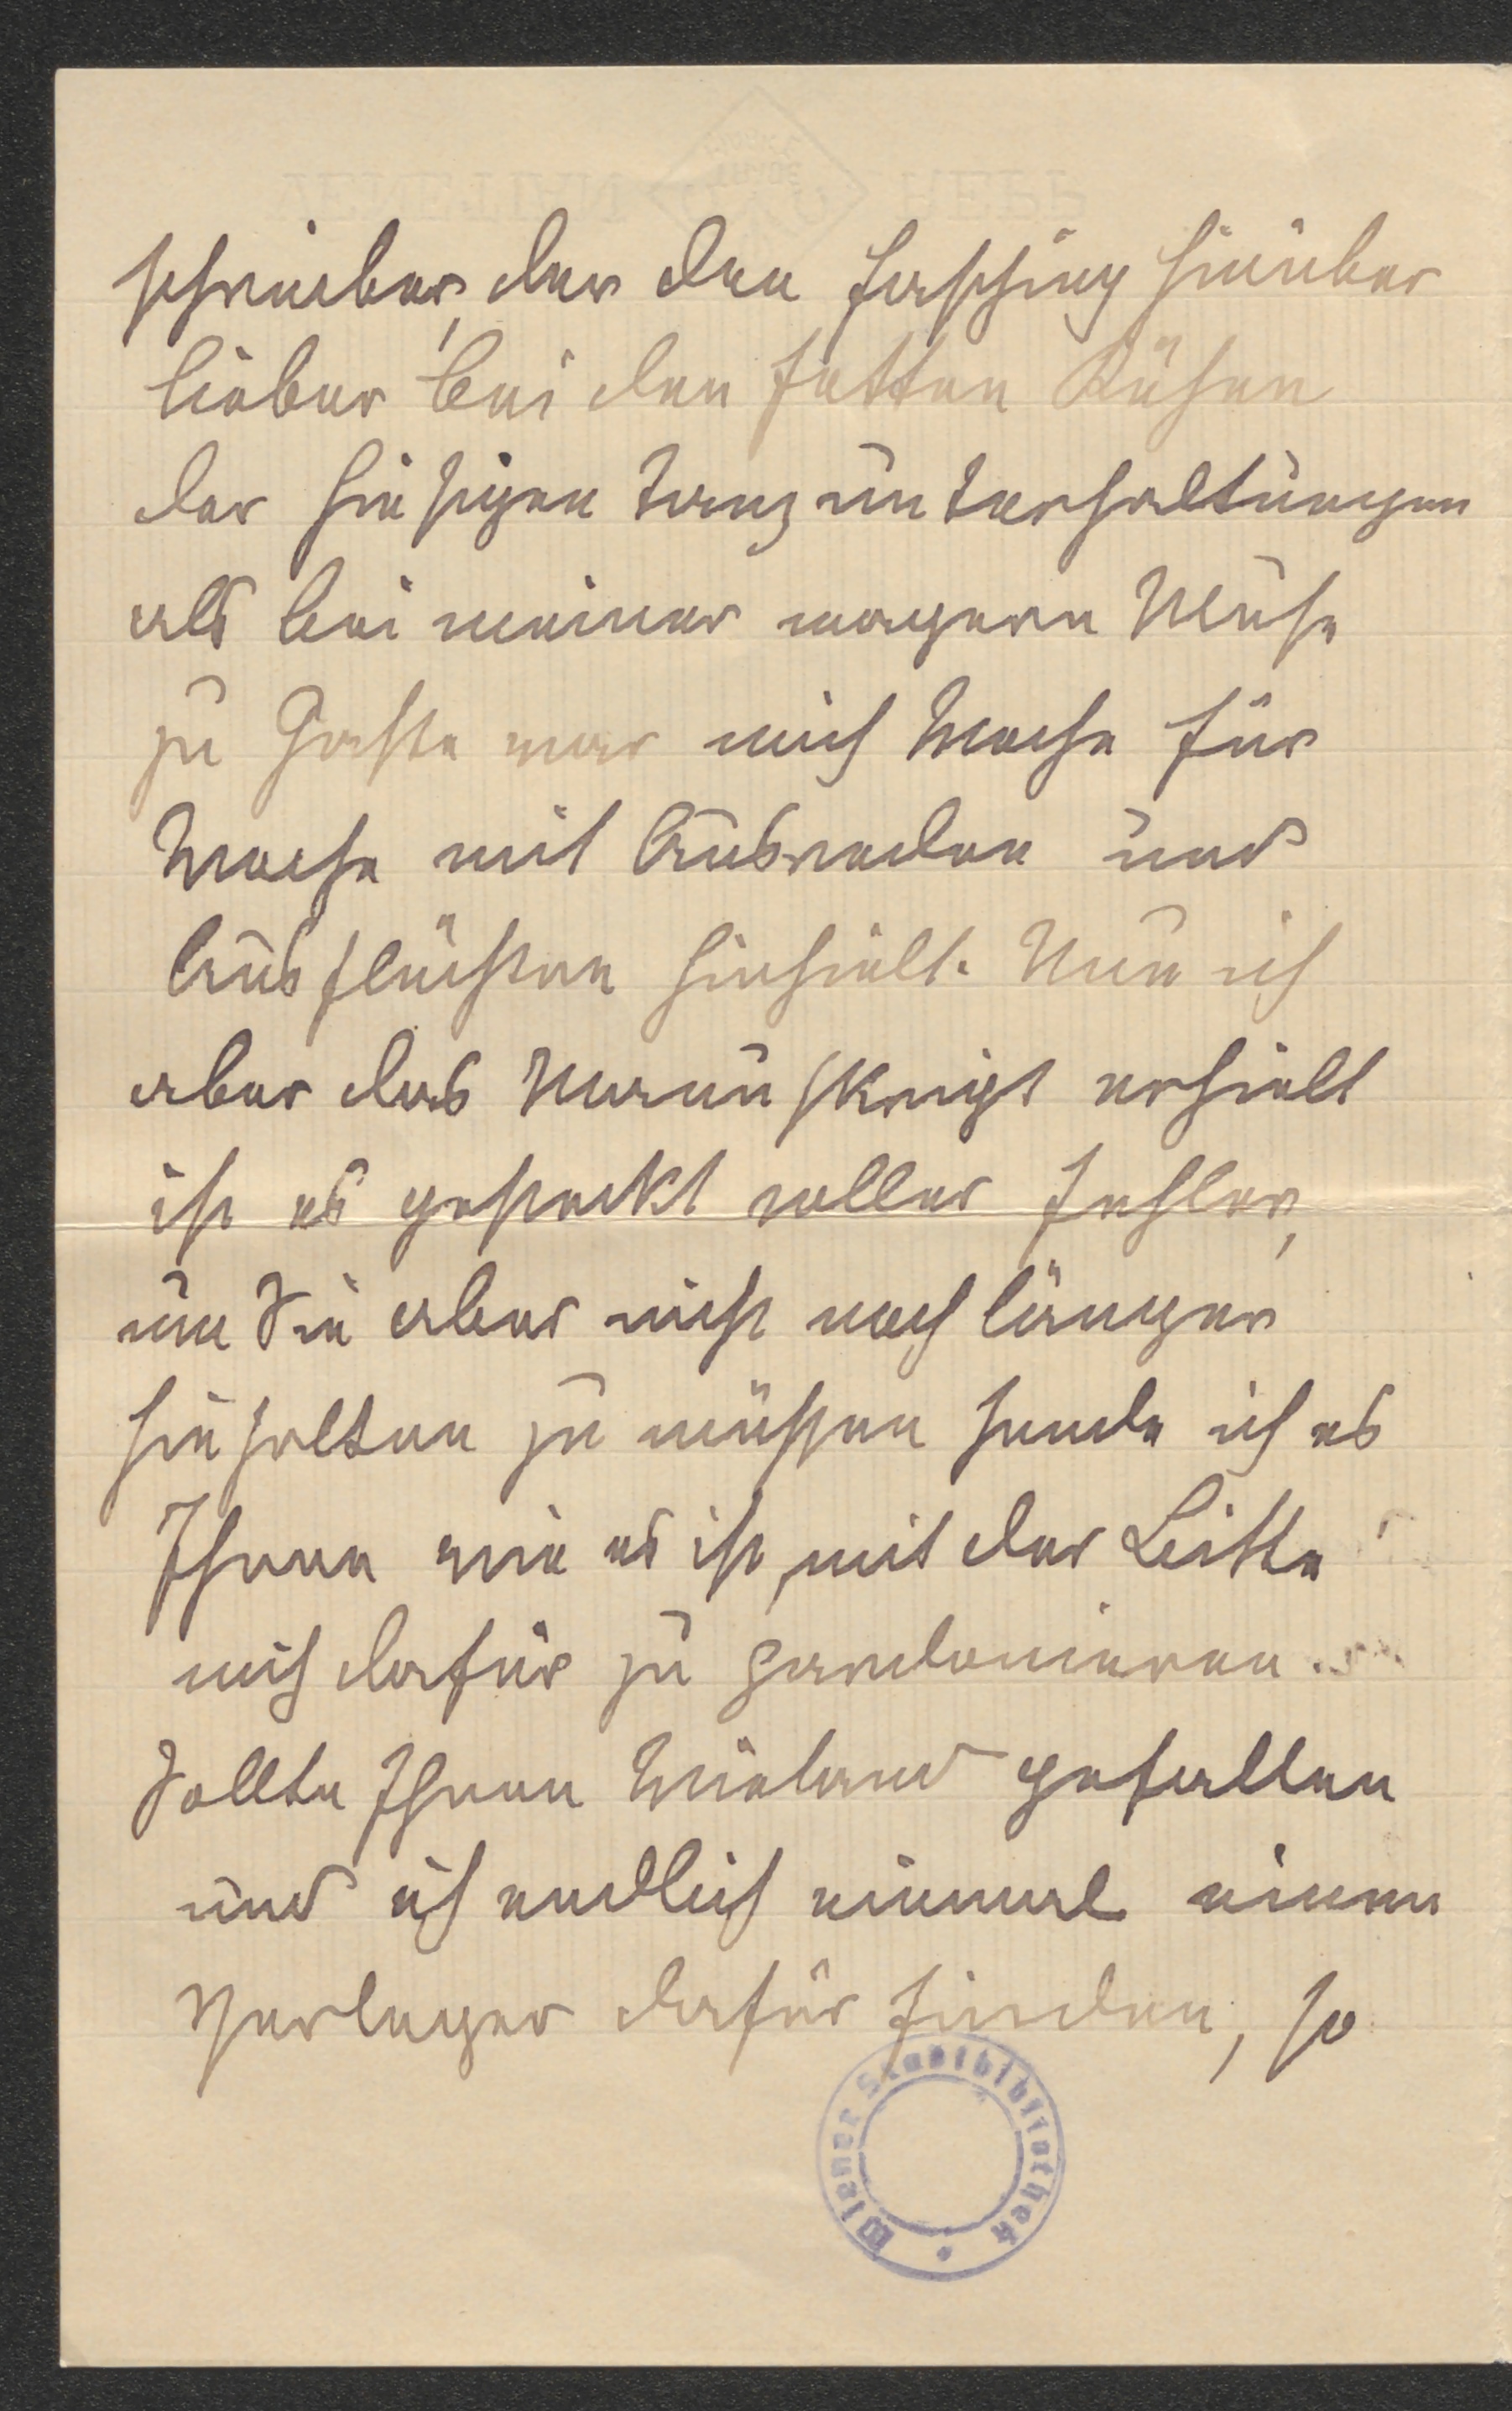 schreiber, der den Fasching hinüber
lieber bei den fetten Kühen
der hiesigen Tanzunterhaltungen
als bei meiner magern Muse
zu Gaste war mich Woche für
Woche mit Ausreden und
Ausflüchten hinhielt. Nun ich
aber das Manuskript erhielt
ist es gespeckt voller Fehler,
um Sie aber nicht noch länger
hinhalten zu müssen sende ich es
Ihnen wie es ist, mit der Bitte
mich dafür zu pardonieren.
Sollte Ihnen Wieland gefallen
und ich endlich einmal einen
Verleger dafür finden, so
Wiener Stadtbibliothek